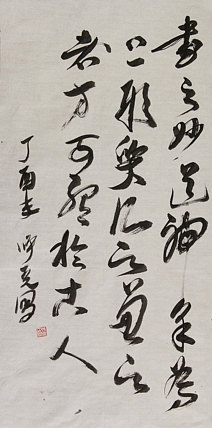 書之妙道神采為
上形質次之兼之
者方可紹於古人
丁酉